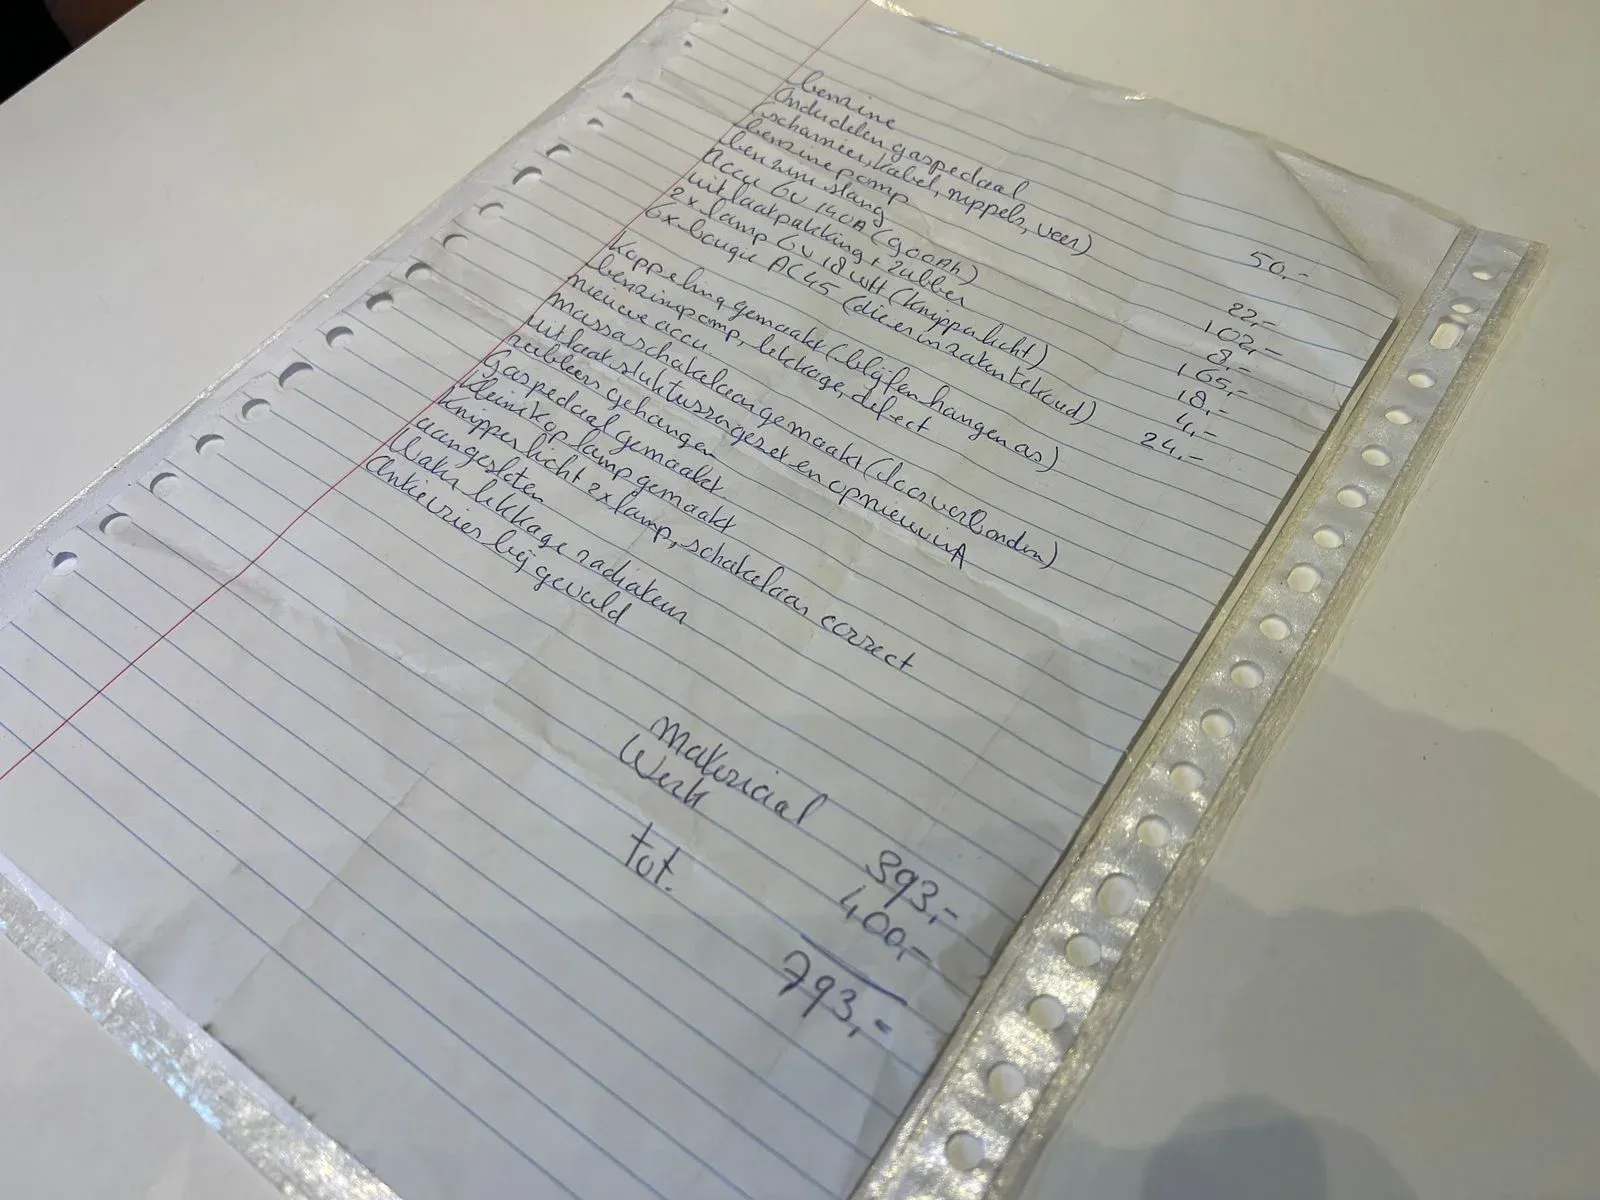 benzine 50,-
Onderdelen gaspedaal
(scharnier, kabel, nippels, veer) 22,-
benzinepomp 102,-
benzine slang 8,-
Accu 6V 140A (900Ah) 165,-
uitlaatpakking + rubber 18,-
2x lamp 6V 18 WH (knipperlicht) 4,-
6x bougie AC45 (die er in zaten te koud) 24,-
Koppeling gemaakt (blijfen hangen as)
benzinepomp, lekkage, defect
nieuwe accu
massaschakelaar gemaakt (doorverbonden)
uitlaatstuk tussengezet en opnieuw in
rubbers gehangen
Gaspedaal gemaakt
Klein koplamp gemaakt
Knipperlicht 2x lamp, schakelaar correct
aangesloten
Water lekkage radiateur
Antievries bij gevuld
Matericial 393,-
Werk 400,-
tot. 793,-